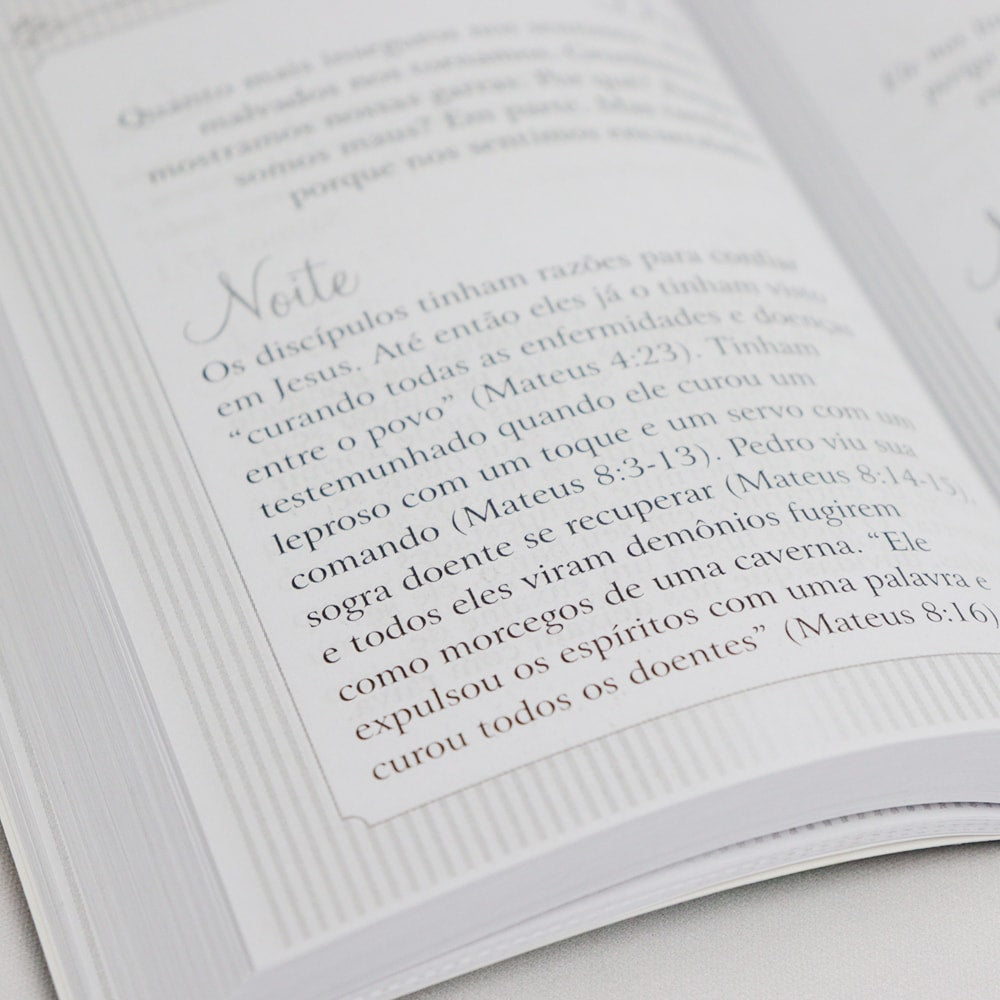 Quanto mais inseguros nos sentimos
malvados nos tornamos.
mostramos nossas garras. Por quê?
somos maus? Em parte. Mas
porque nos sentimos
Noite
Os discípulos tinham razões para confiar
em Jesus. Até então eles já o tinham visto
“curando todas as enfermidades e doenças
entre o povo” (Mateus 4:23). Tinham
testemunhado quando ele curou um
leproso com um toque e um servo com um
comando (Mateus 8:3-13). Pedro viu sua
sogra doente se recuperar (Mateus 8:14-15),
e todos eles viram demônios fugirem
como morcegos de uma caverna. “Ele
expulsou os espíritos com uma palavra e
curou todos os doentes” (Mateus 8:16)